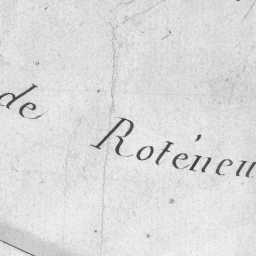 de Roténeu